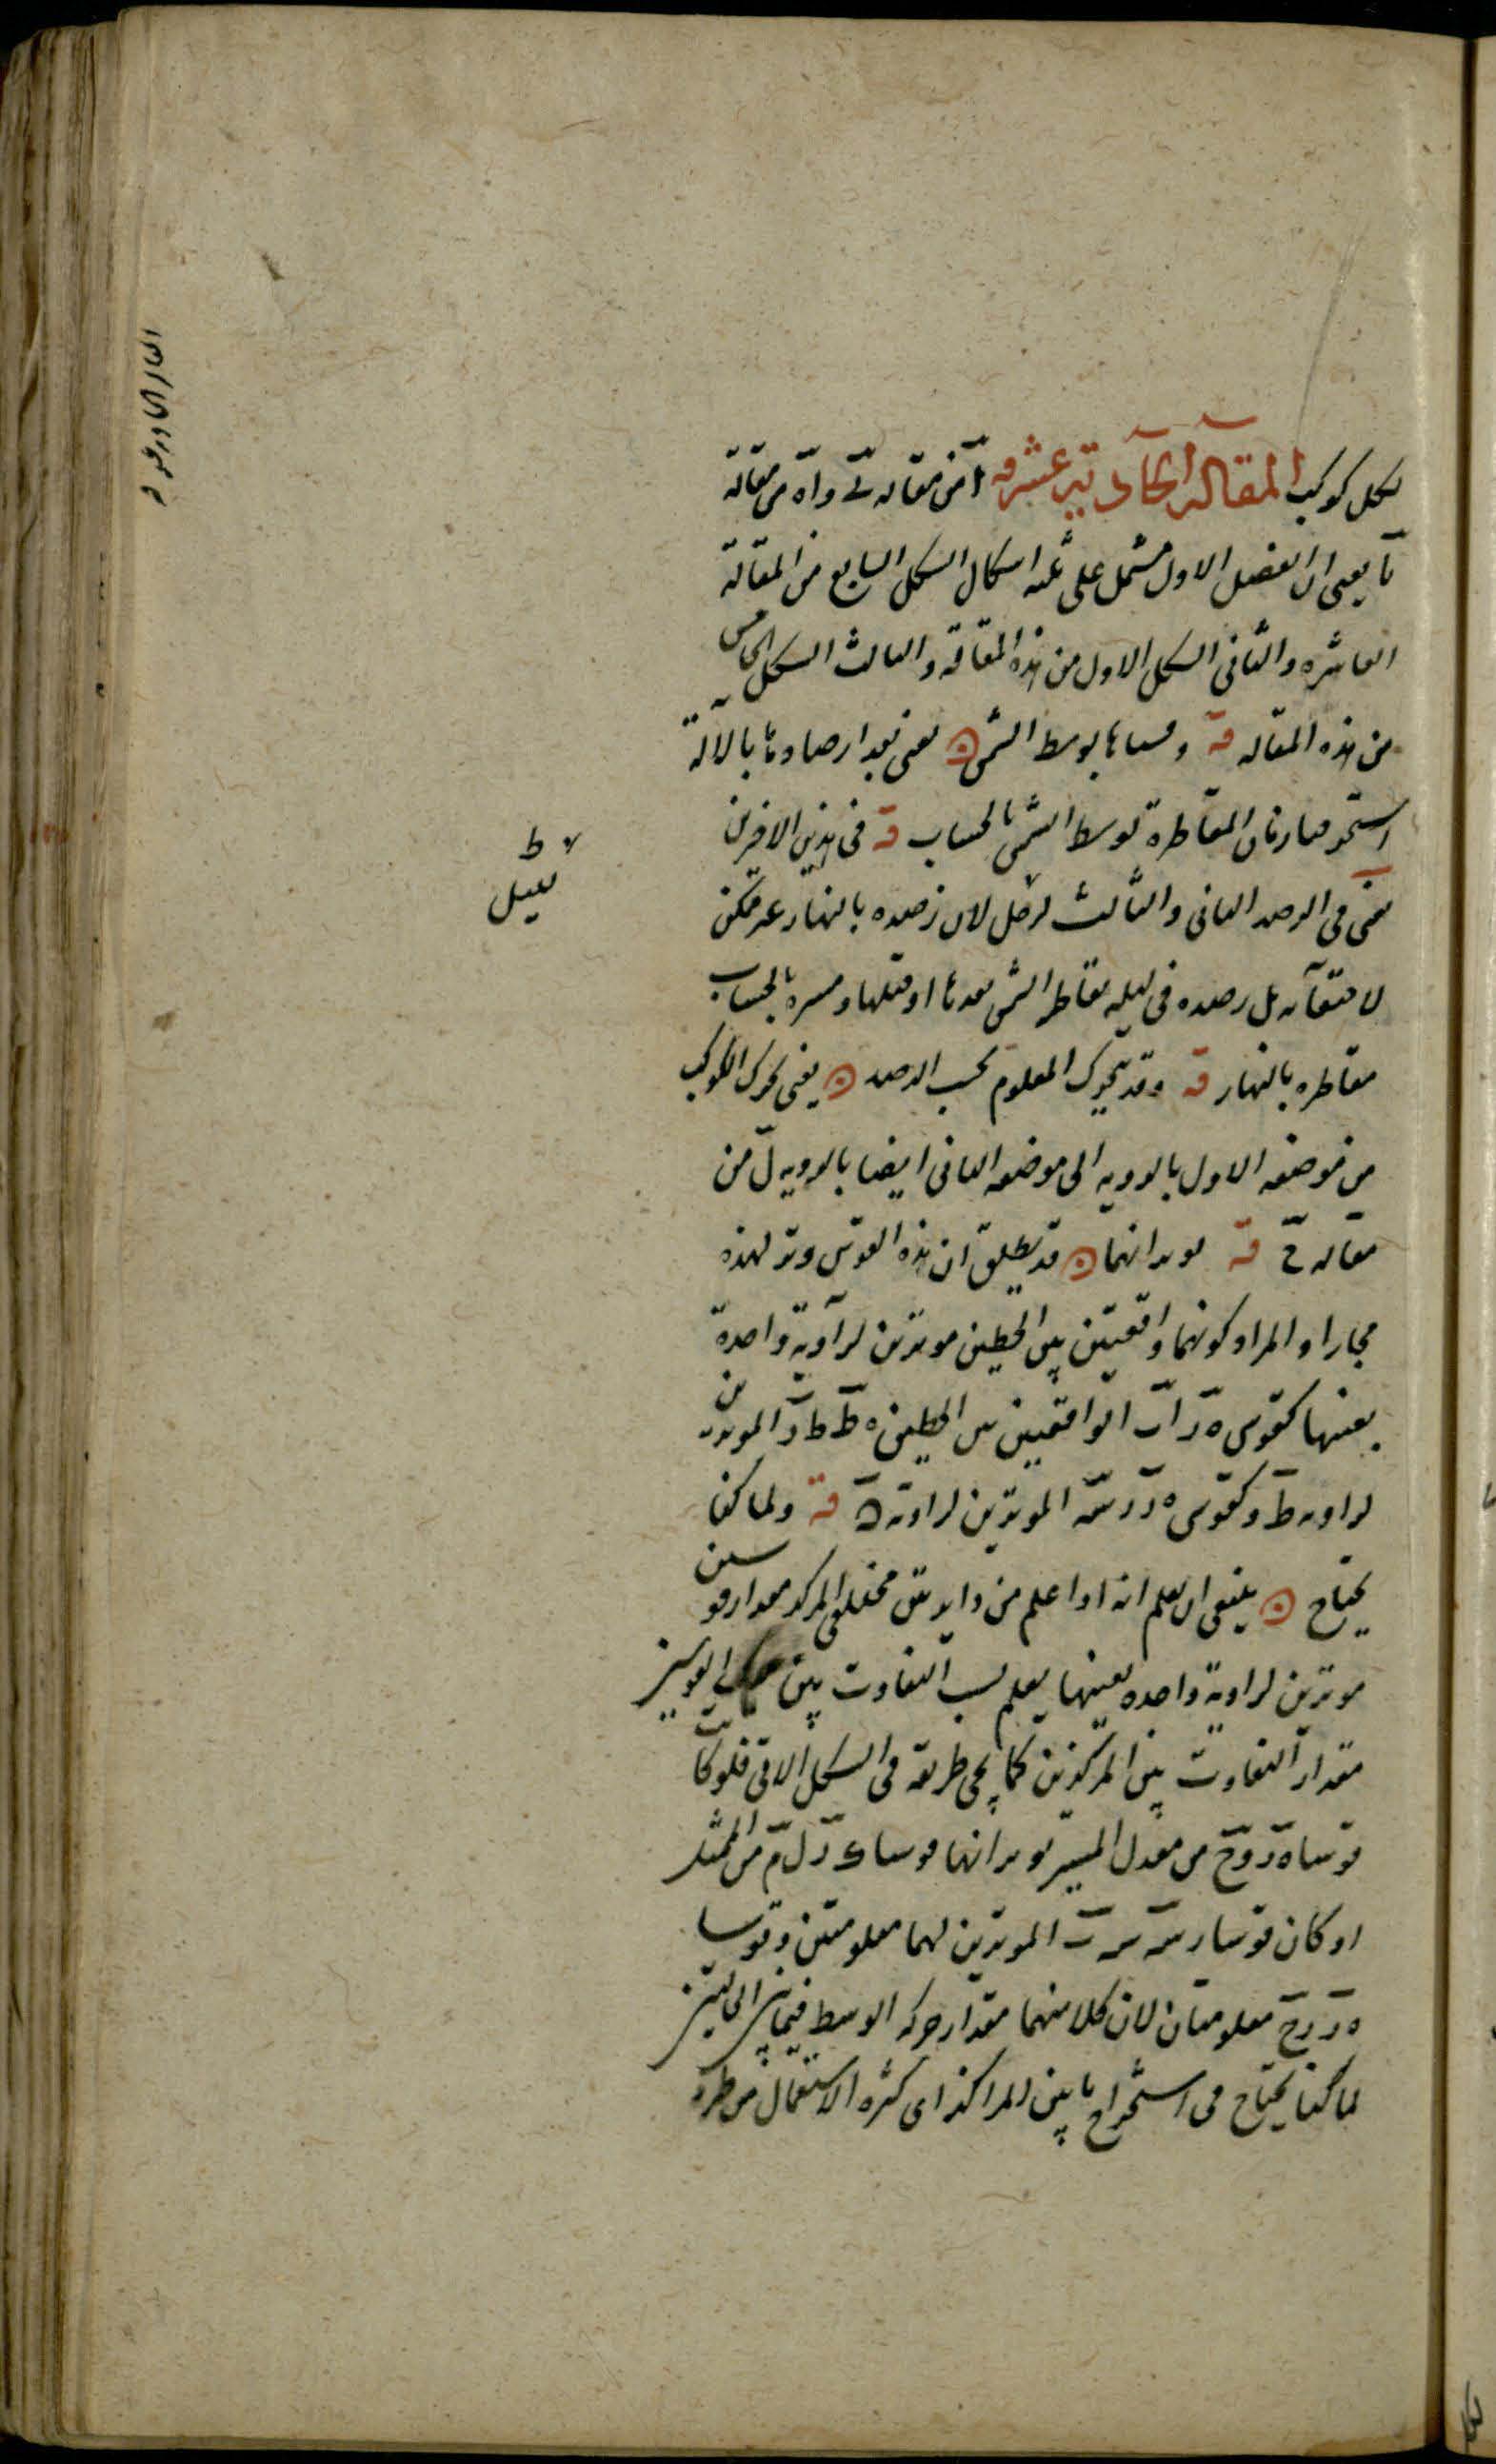 لكل كوكب المقالة الحادية عشر قه ا من مقاله ى وا ه من مقالة
يا يعنى ان الفصل الاول مشتمل على ثلثه اشكال الشكل السابع من المقالة
العاشره والثانى الشكل الاول من هذه المقالة والثالث الشكل الخامس
من هذه المقاله قه وقسناها بوسط الشمس يعنى بعد ارصادها بالآلة
استخرجنا زمان المقاطرة بوسط الشمس بالحساب قه فى هذين الاخرين
يعنى فى الرصد الثانى والثالث لزحل لان رصده بالنهار غير ممكن
لاختفآئه بل رصده فى ليله مقاطر الشمس بعدها او قبلها وسيره بالحساب
مقاطره بالنهار قه وقد تحرك المعلوم بحسب الرصد يعنى تحرك الكوكب
من موضعه الاول بالرويه الى موضعه الثانى ايضا بالرويه ل من
مقاله ح قه يوترانهما قد يطلق ان هذه القوس وتر لهذه
مجازا والمراد كونهما واقعتين بين الخطين موترين لزآوية واحدة
بعينها كقوسى ه ر ا ب الواقعتين بين الخطين ه ط ط ر الموترين
لزاويه ط وكقوسى ه ر ر سه الموترين لزاوية ه قه ولما كنا
نحتاج ينبغى ان يعلم انه اذا علم من دايرتين مختلفى المركز مقدار قوسين
موترين لزاوية واحده بعينها يعلم بسبب التفاوت بين القوسين
مقدار التفاوت بين المركزين كما يجى طريقه فى الشكل الاتى فلو كانت
قوسا ه ر ر ح من معدل المسير يوترانهما قوسا ك ر ل م من الممثل
او كان قوسا ر سه سه ت الموترين لهما معلومتين وقوسا
ه ر ر ح معلومتان لان كلا منهما مقدار حركه الوسط فيما بين الحالتين
لما كنا نحتاج فى استخراج ما بين المراكز اى كثره الاستعمال من طريق
ط
لليل